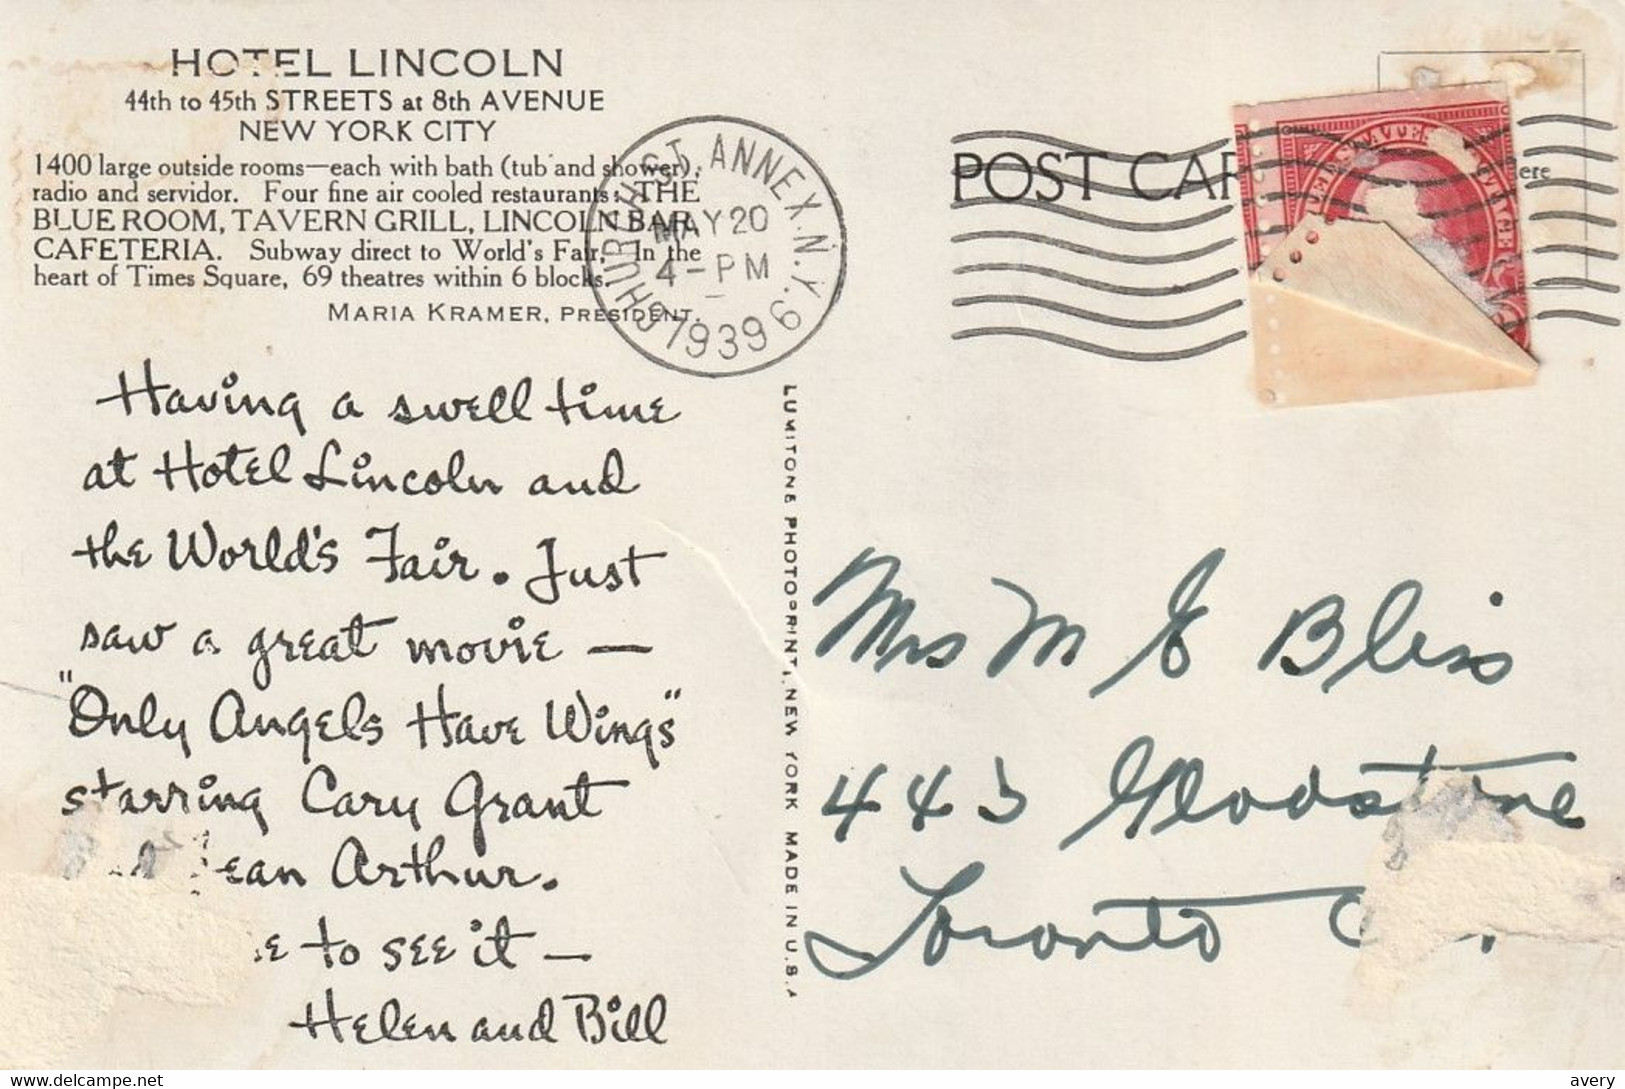 HOTEL LINCOLN
44th to 45th STREETS at 8th AVENUE
NEW YORK CITY
1400 large outside rooms—each with bath (tub and shower),
radio and servidor. Four fine air cooled restaurants: THE
BLUE ROOM, TAVERN GRILL, LINCOLN BAR,
CAFETERIA. Subway direct to World's Fair, In the
heart of Times Square, 69 theatres within 6 blocks.
MARIA KRAMER, PRESIDENT.
Having a swell time
at Hotel Lincoln and
the World's Fair. Just
saw a great movie —
"Only Angels Have Wings"
starring Cary Grant
ean Arthur.
to see it —
Helen and Bill
ST. ANNEX. N.Y.
MAY 20
4-PM
1939
6
LUMITONE PHOTOPRINT, NEW YORK MADE IN U.S.A
POST CAR
ere
Mrs M E Bliss
443 Gladstone
Toronto
avery
www.delcampe.net